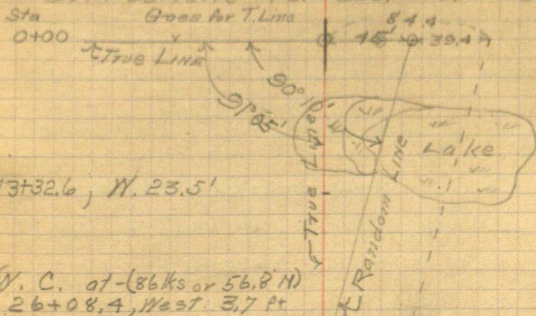 Sta Goes for T. Line 84.4
0+00 True LINE 45' 39.4
90°10'
91°05'
Lake
True Line
Random LINE
13+32.6, W. 23.5'
W. C. at -(86 lks or 56.8 N)
26+08.4, West 3.7 ft